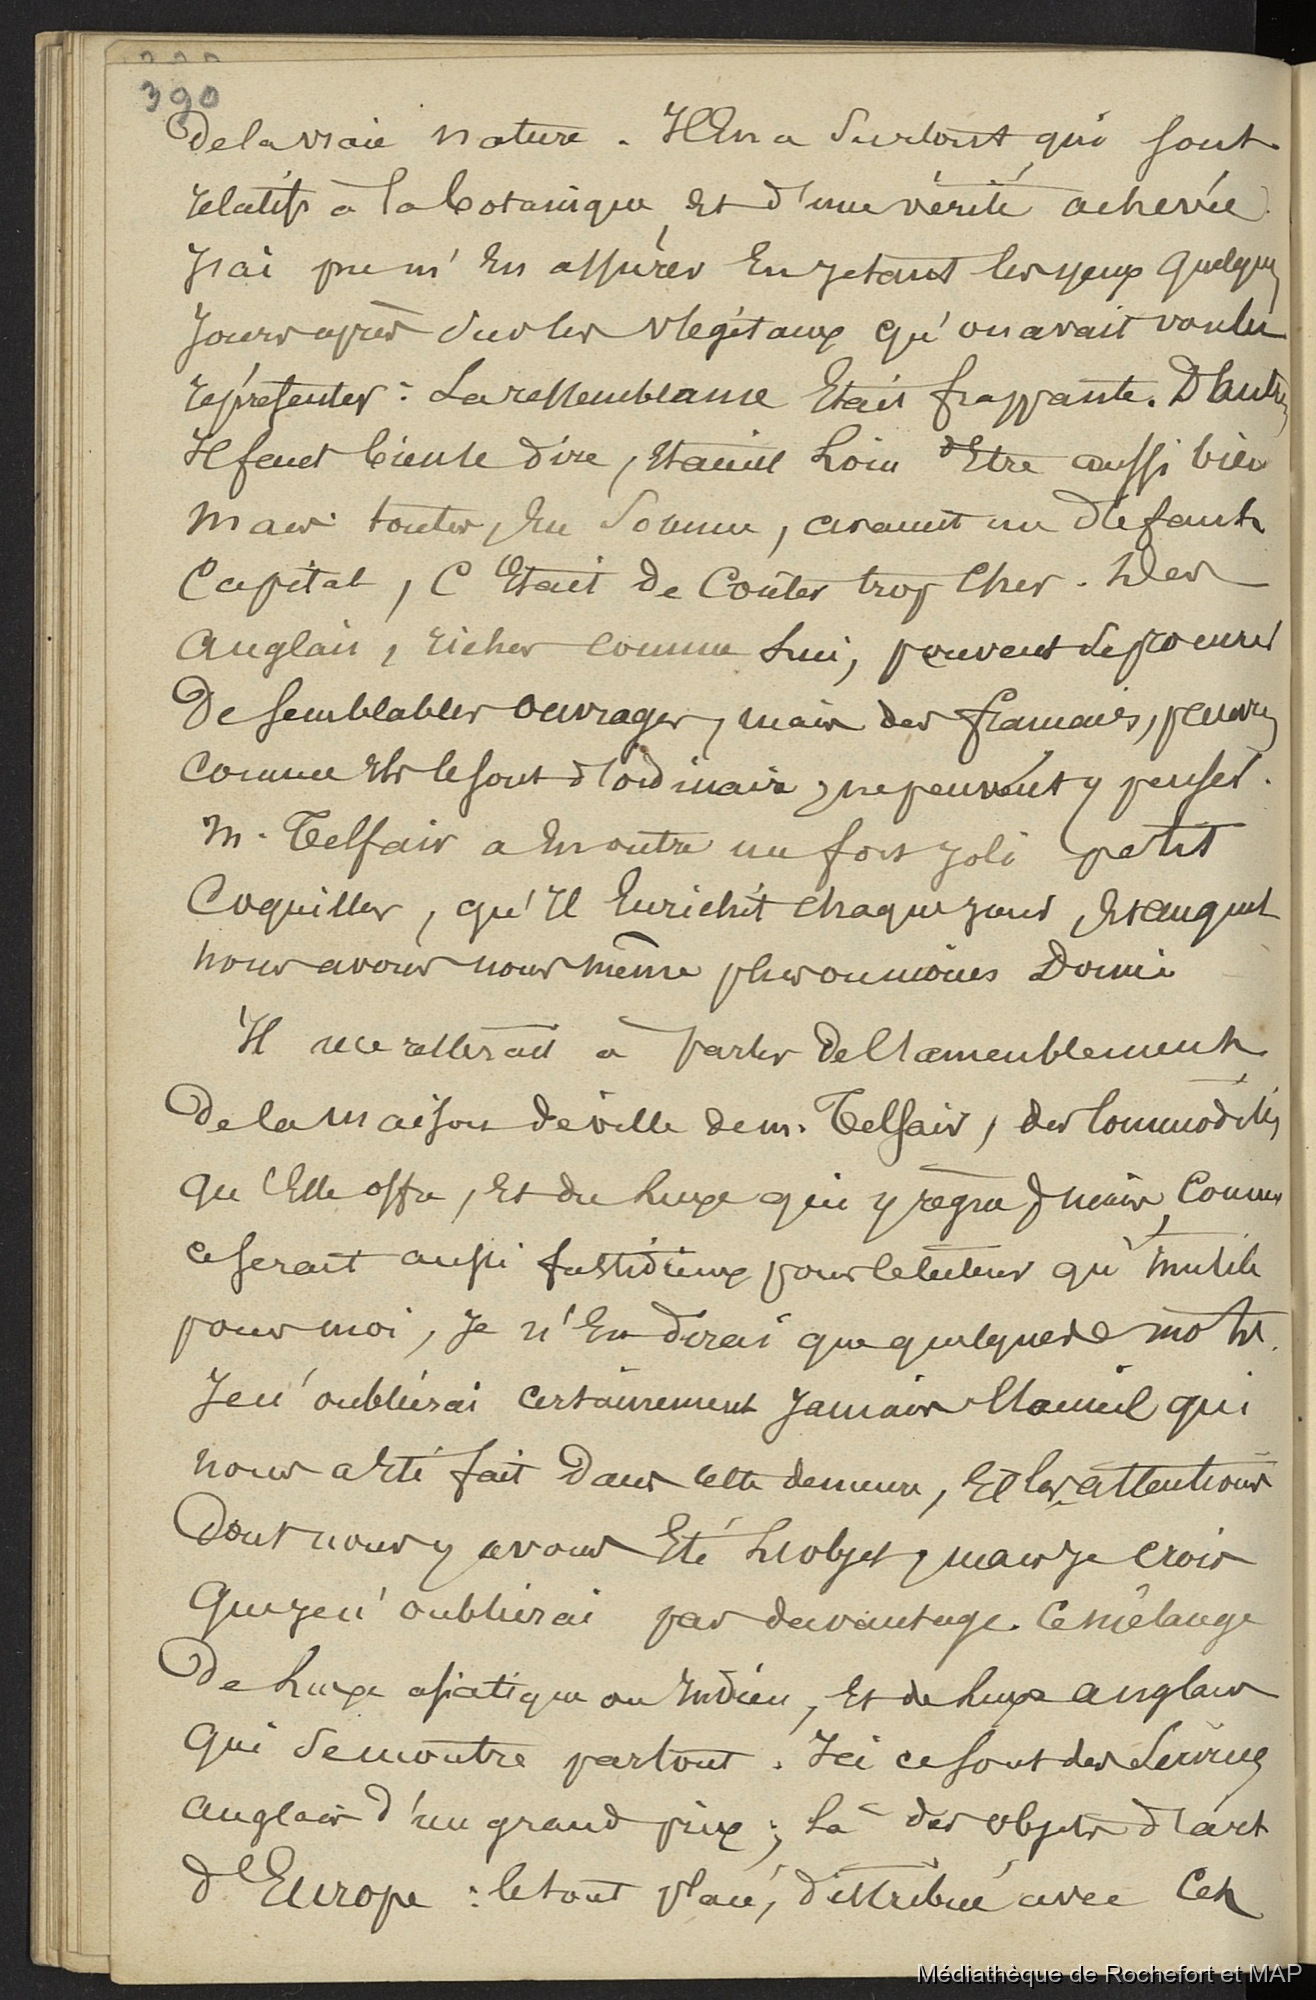 390
de la vraie nature. Il en a surtout qui sont
relatifs à la botanique et d'une vérité achevée.
J'ai pu m'en assurer en jetant les yeux quelques
jours après sur les végétaux qu'on avait voulu
représenter : La ressemblance était frappante. D'autres
Il faut bien le dire, étaient loin d'être aussi bien
mais toutes, en somme, avaient un défaut
capital, c'était de coûter trop cher. Des
anglais, riches comme lui, peuvent se procurer
de semblables ouvrages, mais des français, pauvres
comme ils le sont d'ordinaire, ne peuvent y penser.
M. Telfair a en outre un fort joli petit
Coquiller, qu'il enrichit chaque jour, et auquel
nous avons nous même plus ou moins donné
Il me resterait à parler de l'ameublement
de la maison de ville de m. Telfair, des commodités
qu'elle offre, et du luxe qui y règne ; mais, comme
ce serait aussi fastidieux pour le lecteur qu'inutile
pour moi, je n'en dirai que quelques mots.
Je n'oublierai certainement jamais l'accueil qui
nous a été fait dans cette demeure, et les attentions
dont nous y avons été l'objet, mais je crois
que je n'oublierai pas davantage. Ce mélange
de luxe asiatique ou indien, et de luxe anglais
qui se montre partout. Ici ce sont des
anglais d'un grand prix ; là des objets d'art
d'Europe : le tout placé, distribué avec cet
Médiathèque de Rochefort et MAP